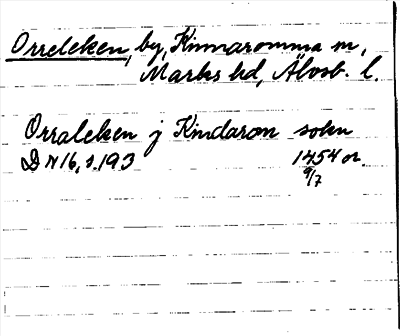 Orreleken, by, Kinnaromma sn,
Marks hd, Älvsb. l.
Orraleken j Kindarom sokn
D N 16, s. 193 1454 or.
9/7